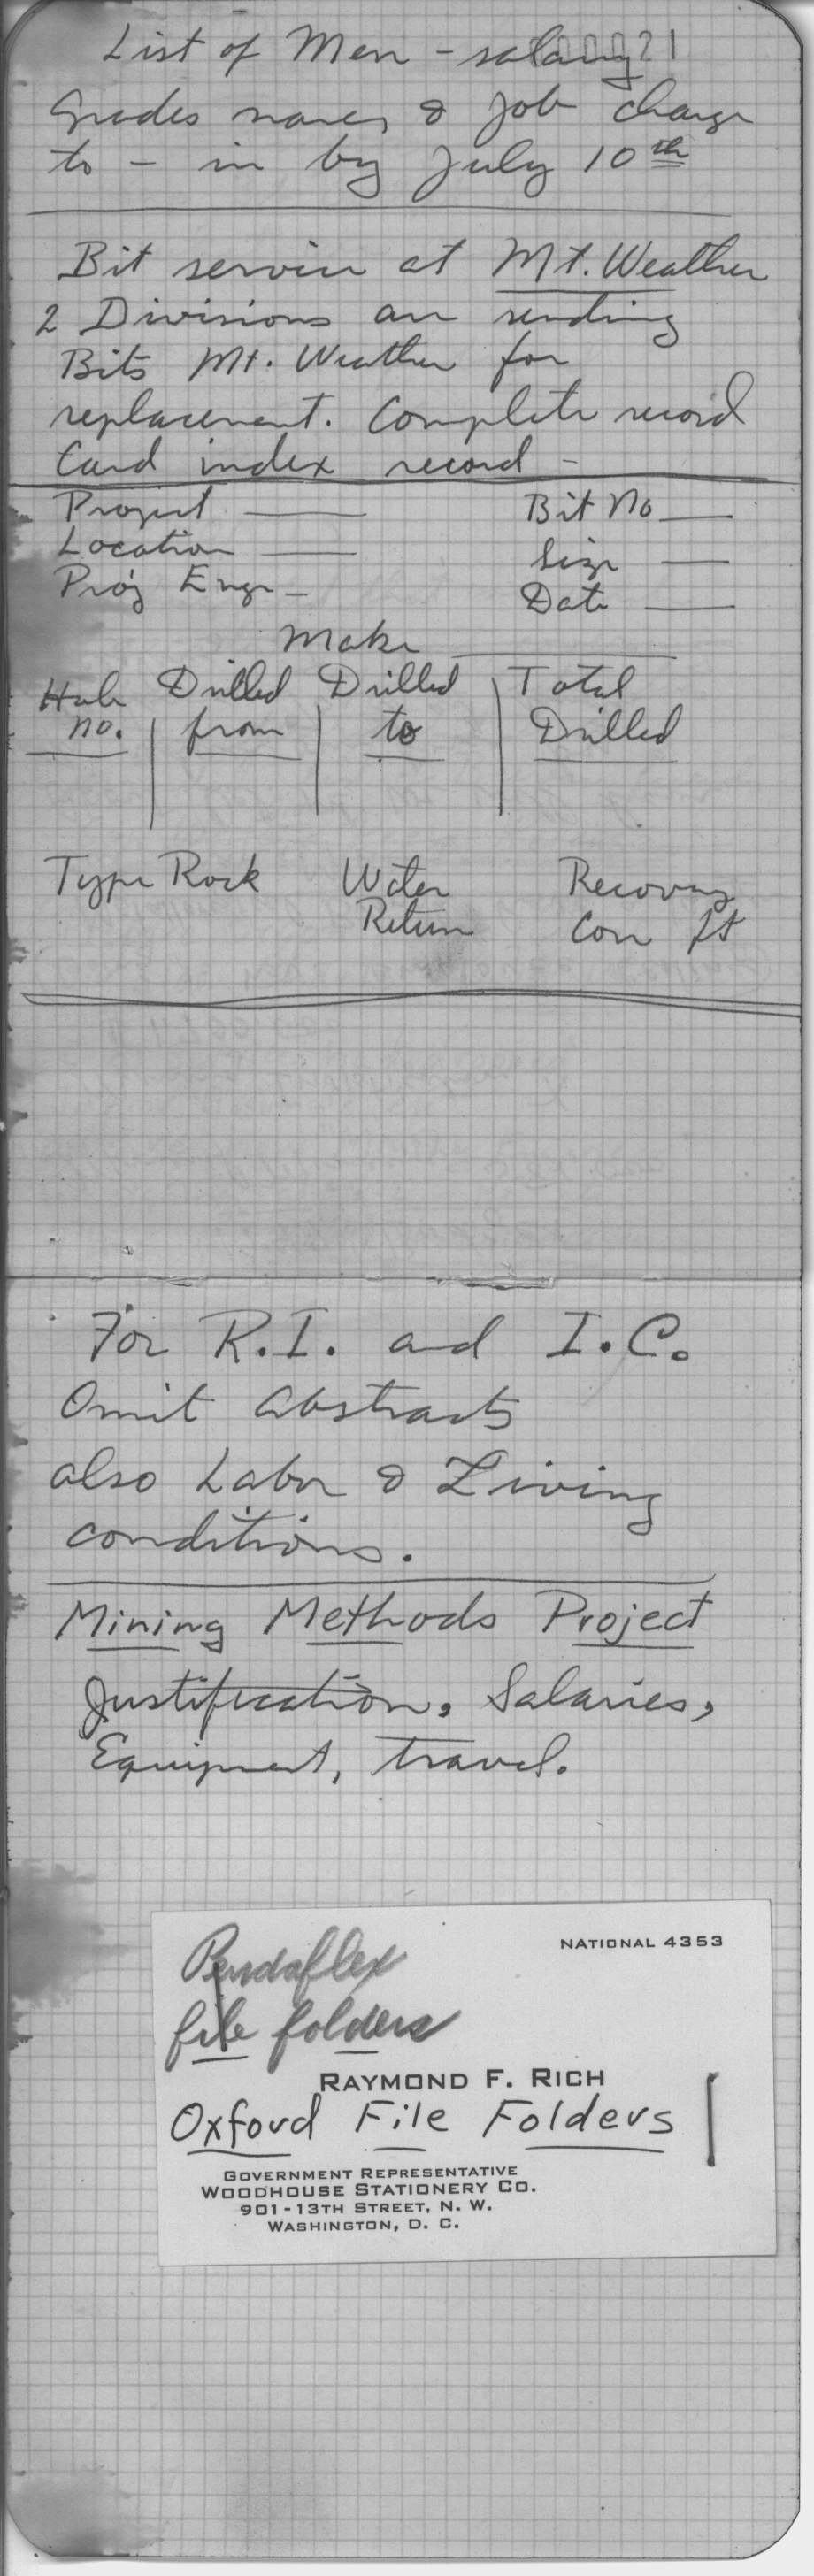 List of Men - salary
000021
Grades names & job charge
to - in by July 10th
Bit service at Mt. Weather
2 Divisions are sending
Bits Mt. Weather for
replacement. Complete record
Card index record -
Project — Bit No —
Location — Size —
Proj Engr - Date —
Make
Hole Drilled Drilled Total
no. from to Drilled
Type Rock Water Recovery
Return Core ft
For R.I. and I.C.
Omit Abstracts
also Labor & Living
conditions.
Mining Methods Project
Justification, Salaries,
Equipment, travel.
NATIONAL 4353
Pendaflex
file folders
RAYMOND F. RICH
Oxford File Folders
GOVERNMENT REPRESENTATIVE
WOODHOUSE STATIONERY CO.
901-13TH STREET, N. W.
WASHINGTON, D. C.